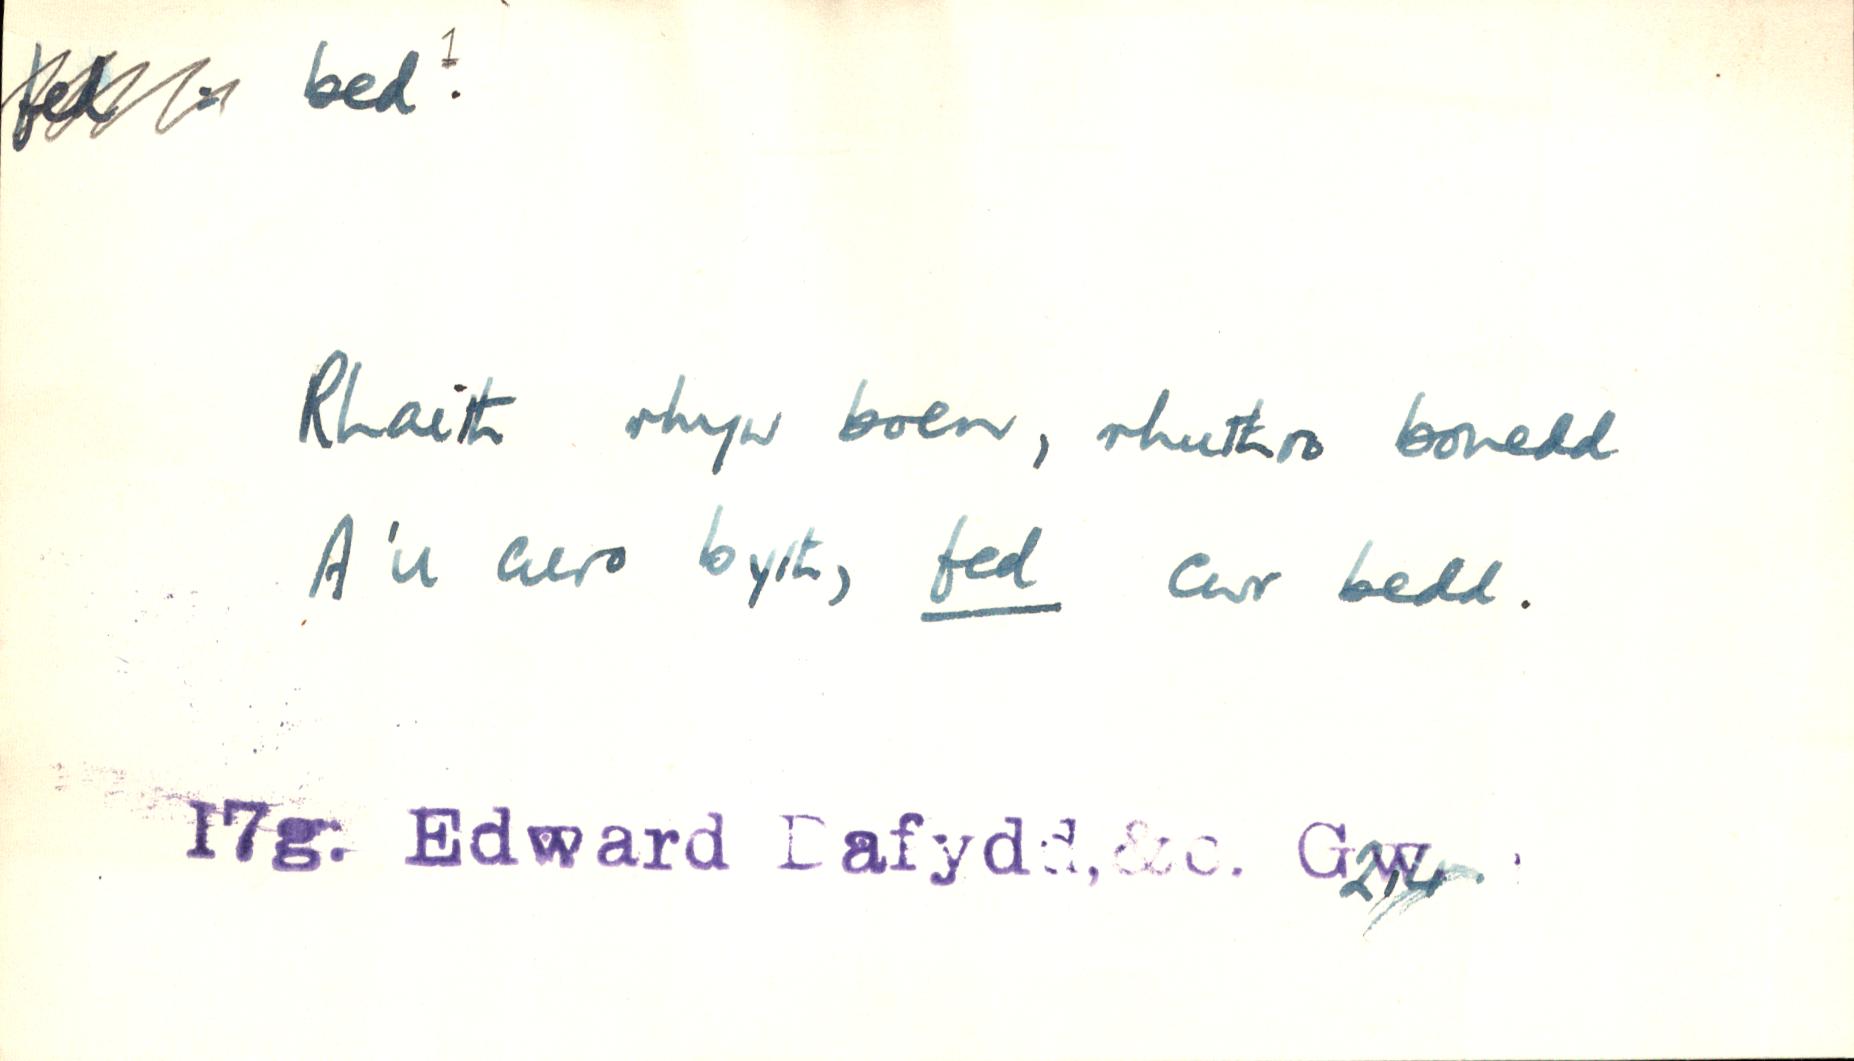 fed = bed¹.
Rhaith rhyw boen, rhuthro bonedd
A'u curo byth, fed cwr bedd.
17g. Edward Dafydd,&c. Gw.